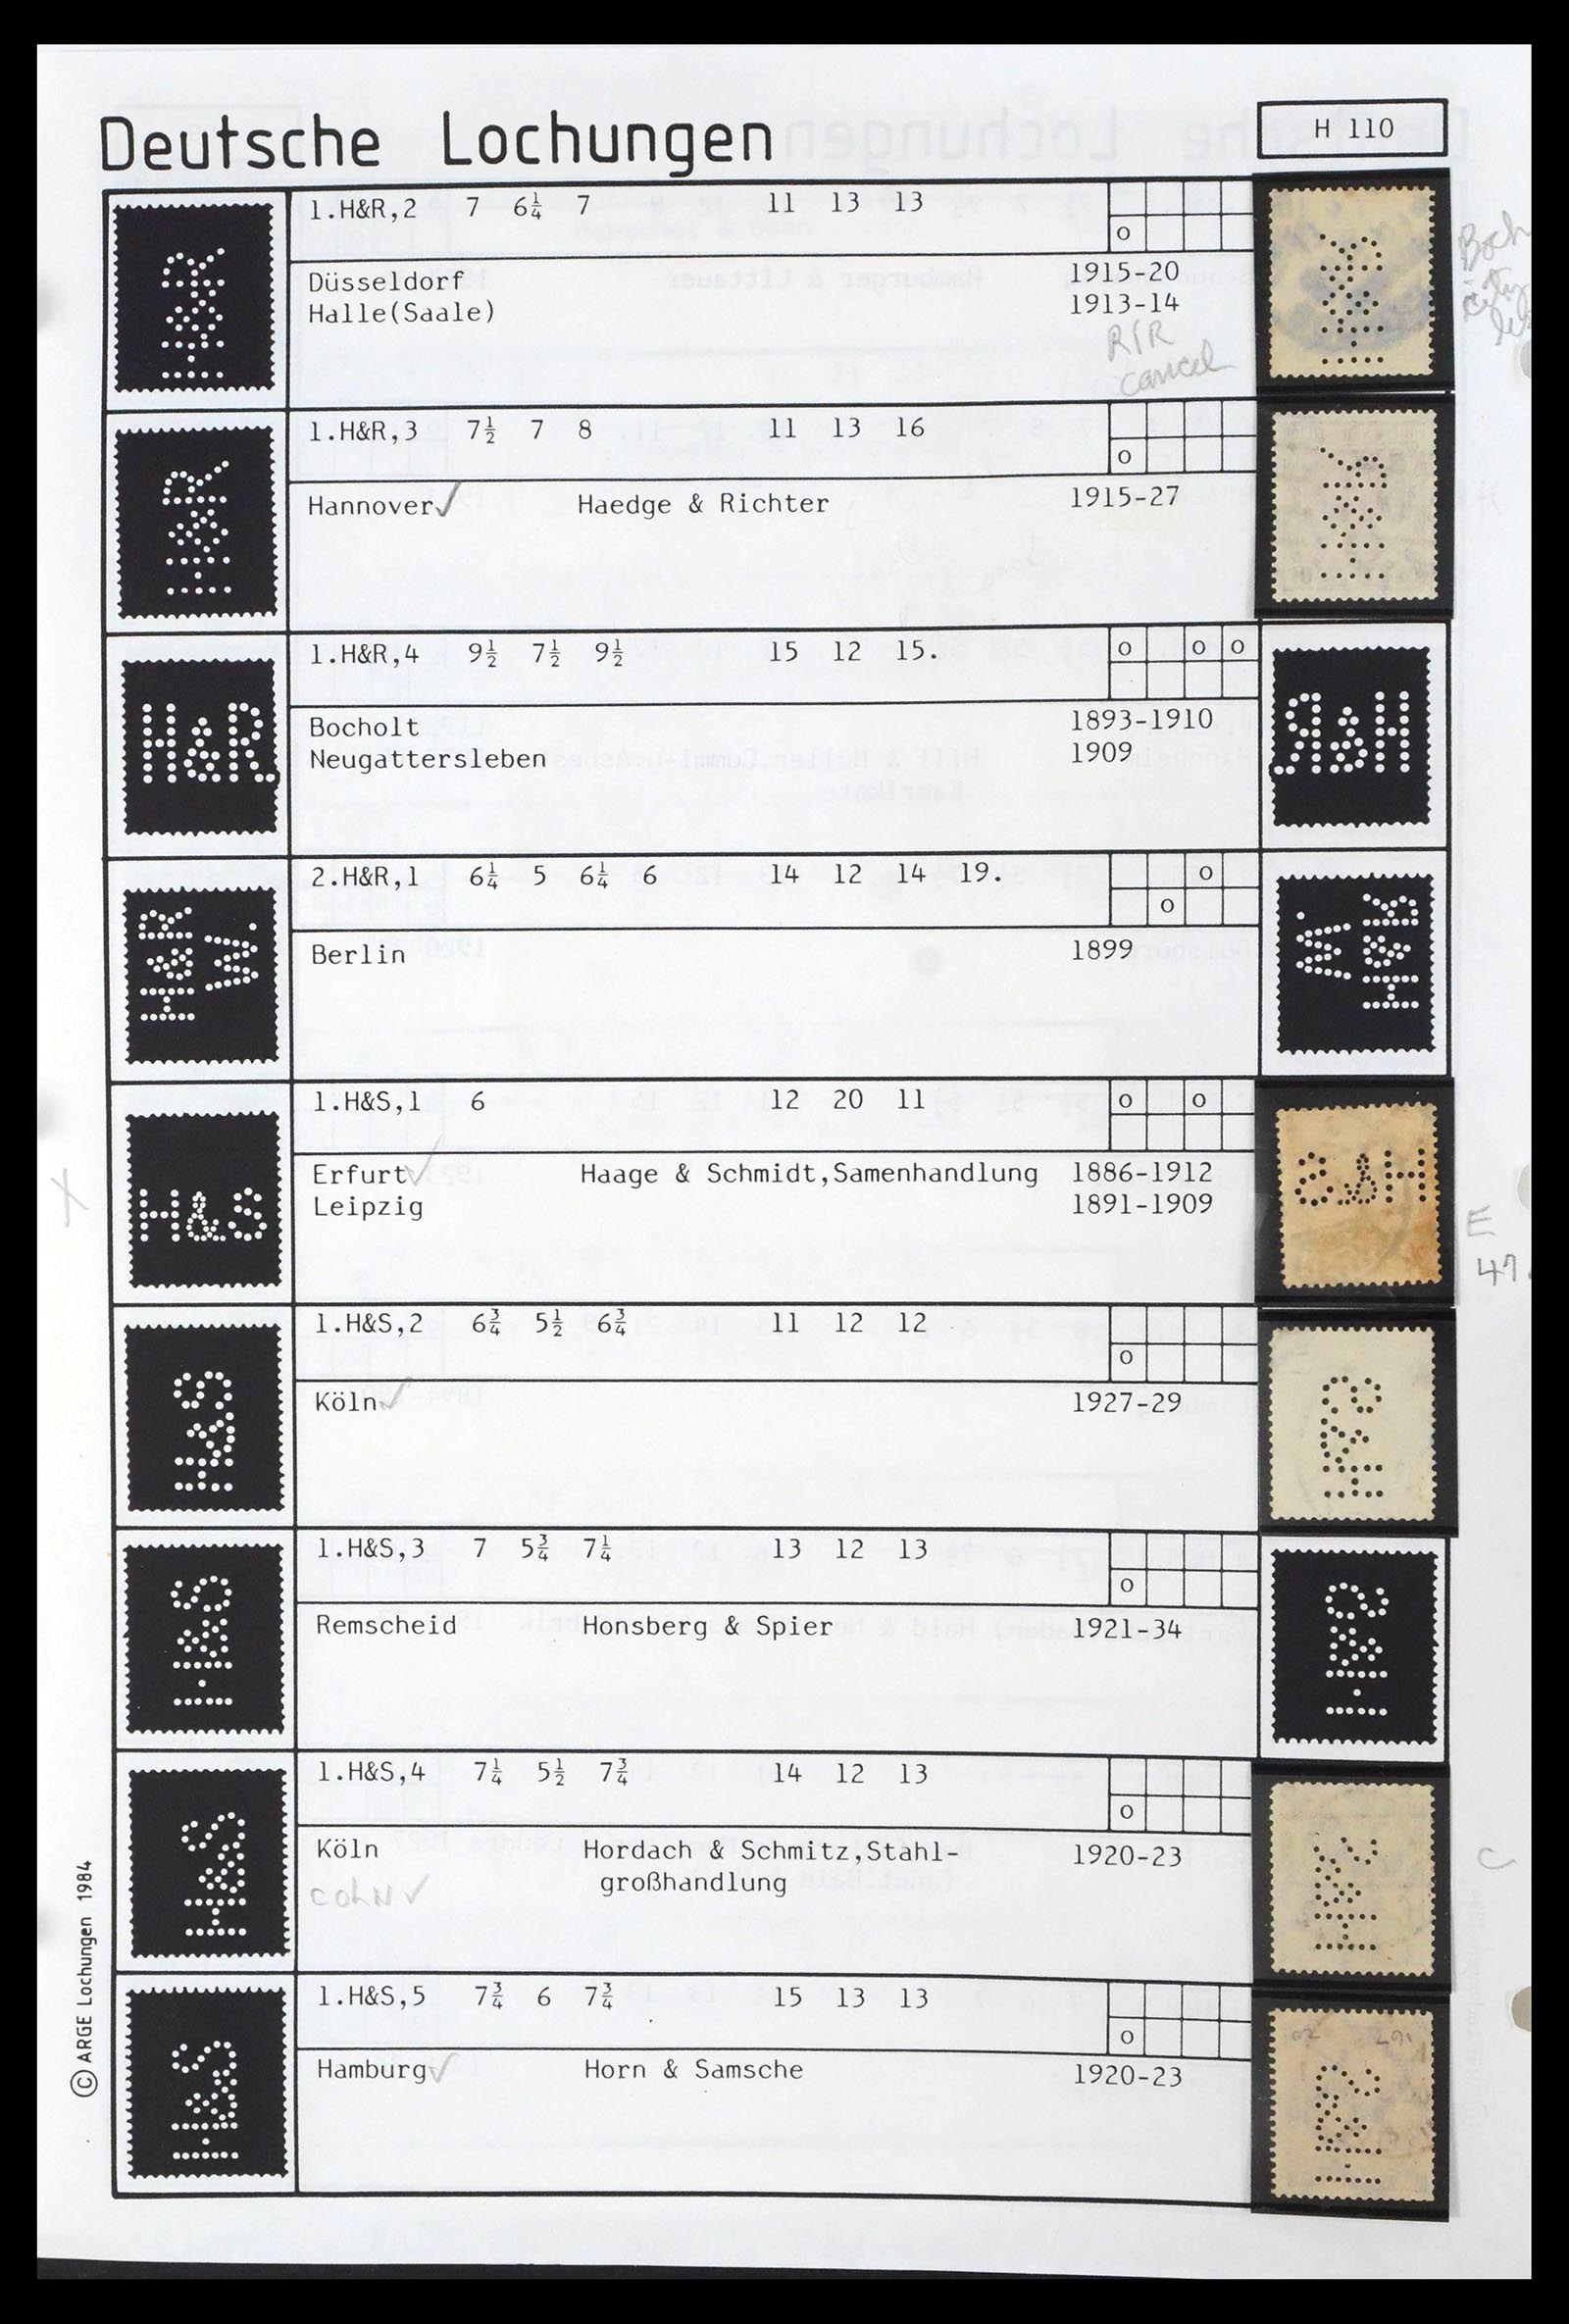 Deutsche Lochungen
H 110
1.H&R,2 7 6¼ 7 11 13 13
o
Düsseldorf 1915-20
Halle(Saale) 1913-14
cancel
H&R
1.H&R,3 7½ 7 8 11 13 16
o
Hannover✓ Haedge & Richter 1915-27
H&R
1.H&R,4 9½ 7½ 9½ 15 12 15.
o o o
Bocholt 1893-1910
Neugattersleben 1909
H&R.
2.H&R,1 6¼ 5 6¼ 6 14 12 14 19.
o
o
Berlin 1899
H&R
W.
1.H&S,1 6 12 20 11
o o
Erfurt✓ Haage & Schmidt,Samenhandlung 1886-1912
Leipzig 1891-1909
H&S
E
47.
1.H&S,2 6¾ 5½ 6¾ 11 12 12
o
Köln✓ 1927-29
H&S
1.H&S,3 7 5¾ 7¼ 13 12 13
o
Remscheid Honsberg & Spier 1921-34
H&S
1.H&S,4 7¼ 5½ 7¾ 14 12 13
o
Köln Hordach & Schmitz,Stahl- 1920-23
großhandlung
COLN ✓
H&S
C
1.H&S,5 7¾ 6 7¾ 15 13 13
o
Hamburg✓ Horn & Samsche 1920-23
H&S
© ARGE Lochungen 1984